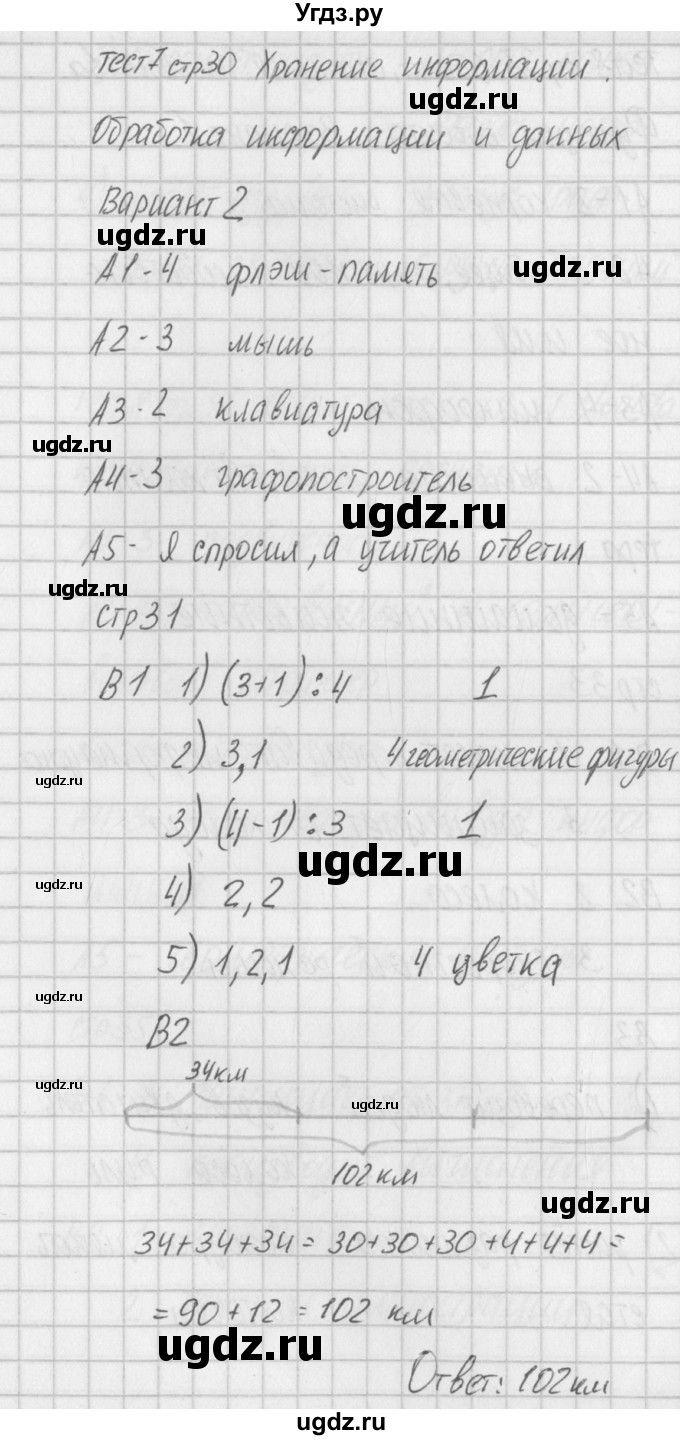 Угдз.ру
тест7 стр30 Хранение информации.
ugdz.ru
Обработка информации и данных
Вариант 2
ugdz.ru
ugdz.ru
А1-4 флэш-память
А2-3 мышь
А3-2 клавиатура
ugdz.ru
А4-3 графопостроитель
ugdz.ru
А5- Я спросил, а учитель ответил
ugdz.ru
стр31
В1 1) (3+1):4 1
2) 3,1 4 геометрические фигуры
ugdz.ru
3) (4-1):3 1
ugdz.ru
4) 2,2
ugdz.ru
5) 1,2,1 4 цветка
ugdz.ru
В2
34км
ugdz.ru
ugdz.ru
102 км
ugdz.ru
34+34+34= 30+30+30+4+4+4=
=90+12=102 км
ugdz.ru
Ответ: 102км
ugdz.ru